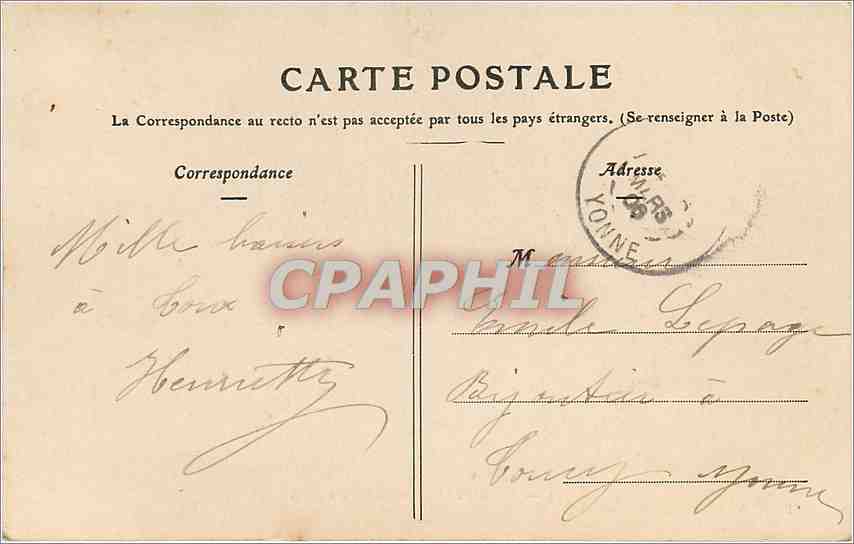 CARTE POSTALE
La Correspondance au recto n'est pas acceptée par tous les pays étrangers. (Se renseigner à la Poste)
Correspondance
Mille baisers
à
Henriette
Adresse
MARS
06
YONNE
Monsieur
Emile Lepage
Bijoutier à
Yonne
CPAPHIL